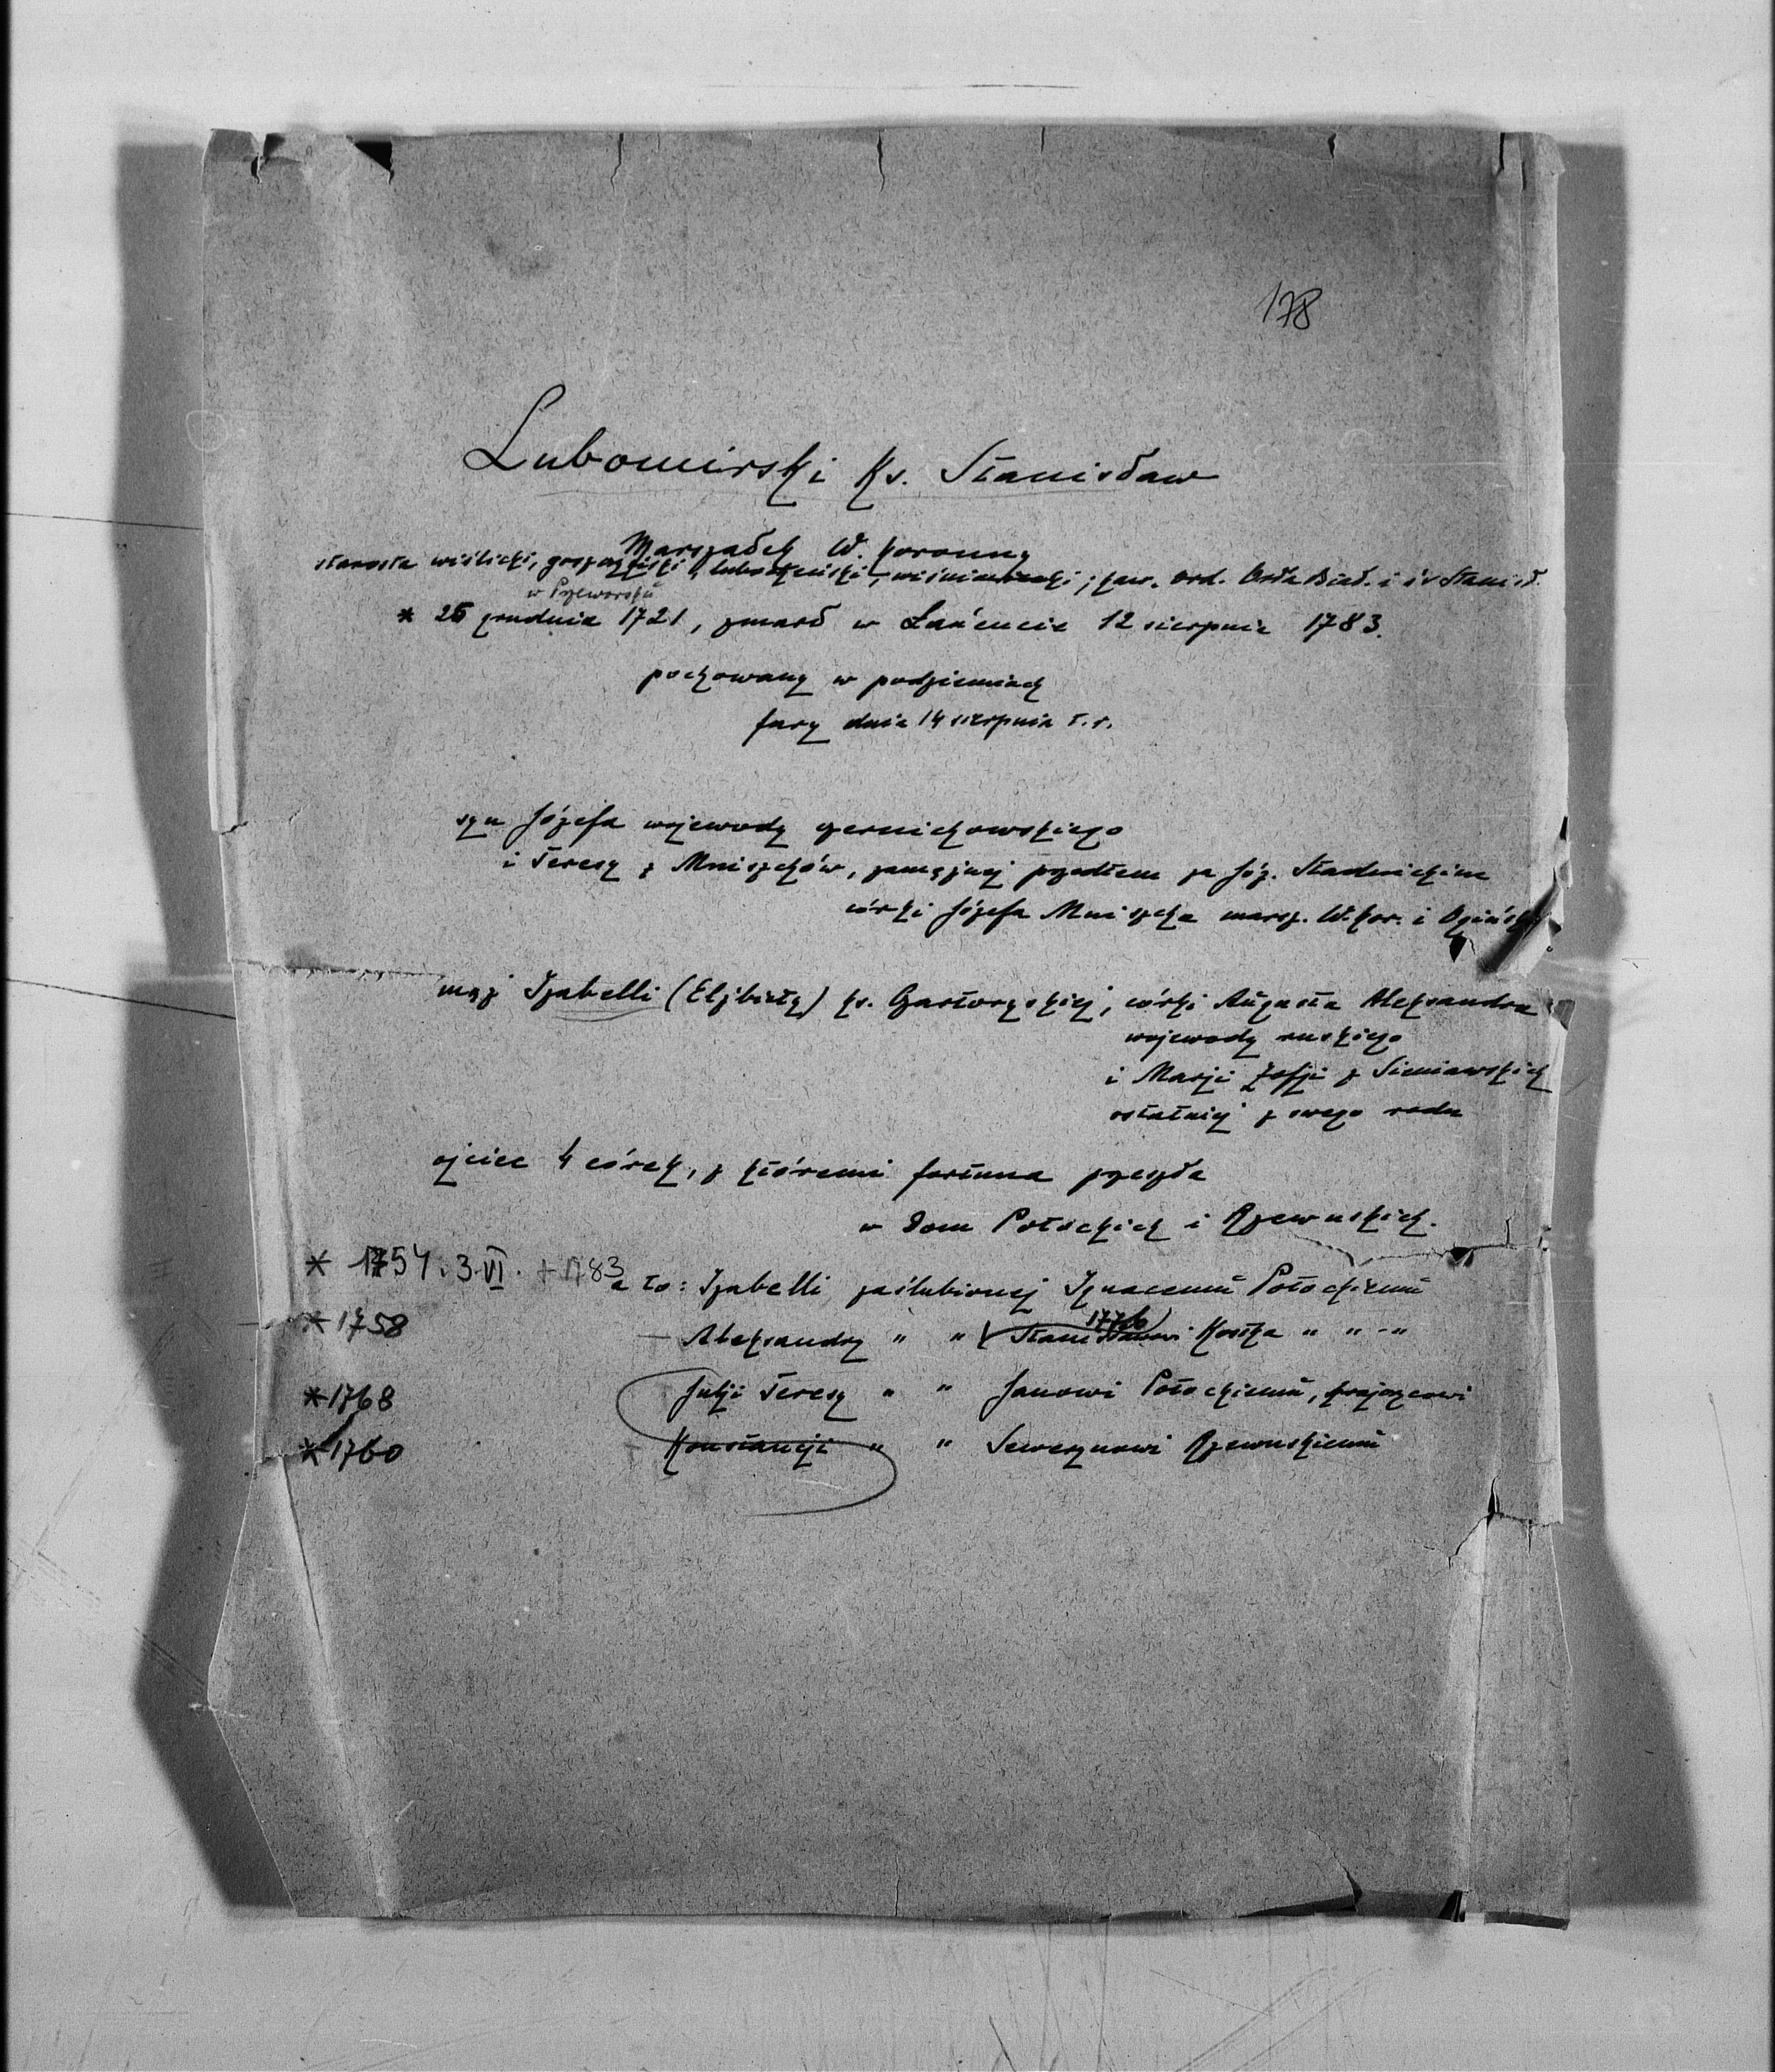 178
Lubomirski Ks. Stanisław
Marszałek W. koronny
starosta wiślicki, lubocheński, kaw. ord. Orła Biał. i św Stanisł.
w Przeworsku
* 25 grudnia 1721, zmarł w Łańcucie 12 sierpnia 1783.
pochowany w podziemiach
fary dnia 14 sierpnia t. r.
syn Józefa wojewody czernichowskiego
i Teresy z Mniszchów, zamężnej przedtem za Józ. Stadnickim
córki Józefa Mniszcha marsz. W. kor. i
mąż Izabelli (Elżbiety) ks. Czartoryskiej, córki Augusta Aleksandra
wojewody ruskiego
i Marji Zofji z Sieniawskich
ostatniej z swego rodu
ojciec 4 córek, z któremi fortuna przeszła
w Dom Potockich i Rzewuskich.
* 1754. 3.VI. +1783 a to: Izabelli zaślubionej Ignacemu Potockiemu
* 1758 Aleksandry " " Stanisławowi Kostka " " - "
1776
* 1768 Julji Teresy " " Janowi Potockiemu, krajczcowi
* 1760 Konstancji " " Sewerynowi Rzewuskiemu